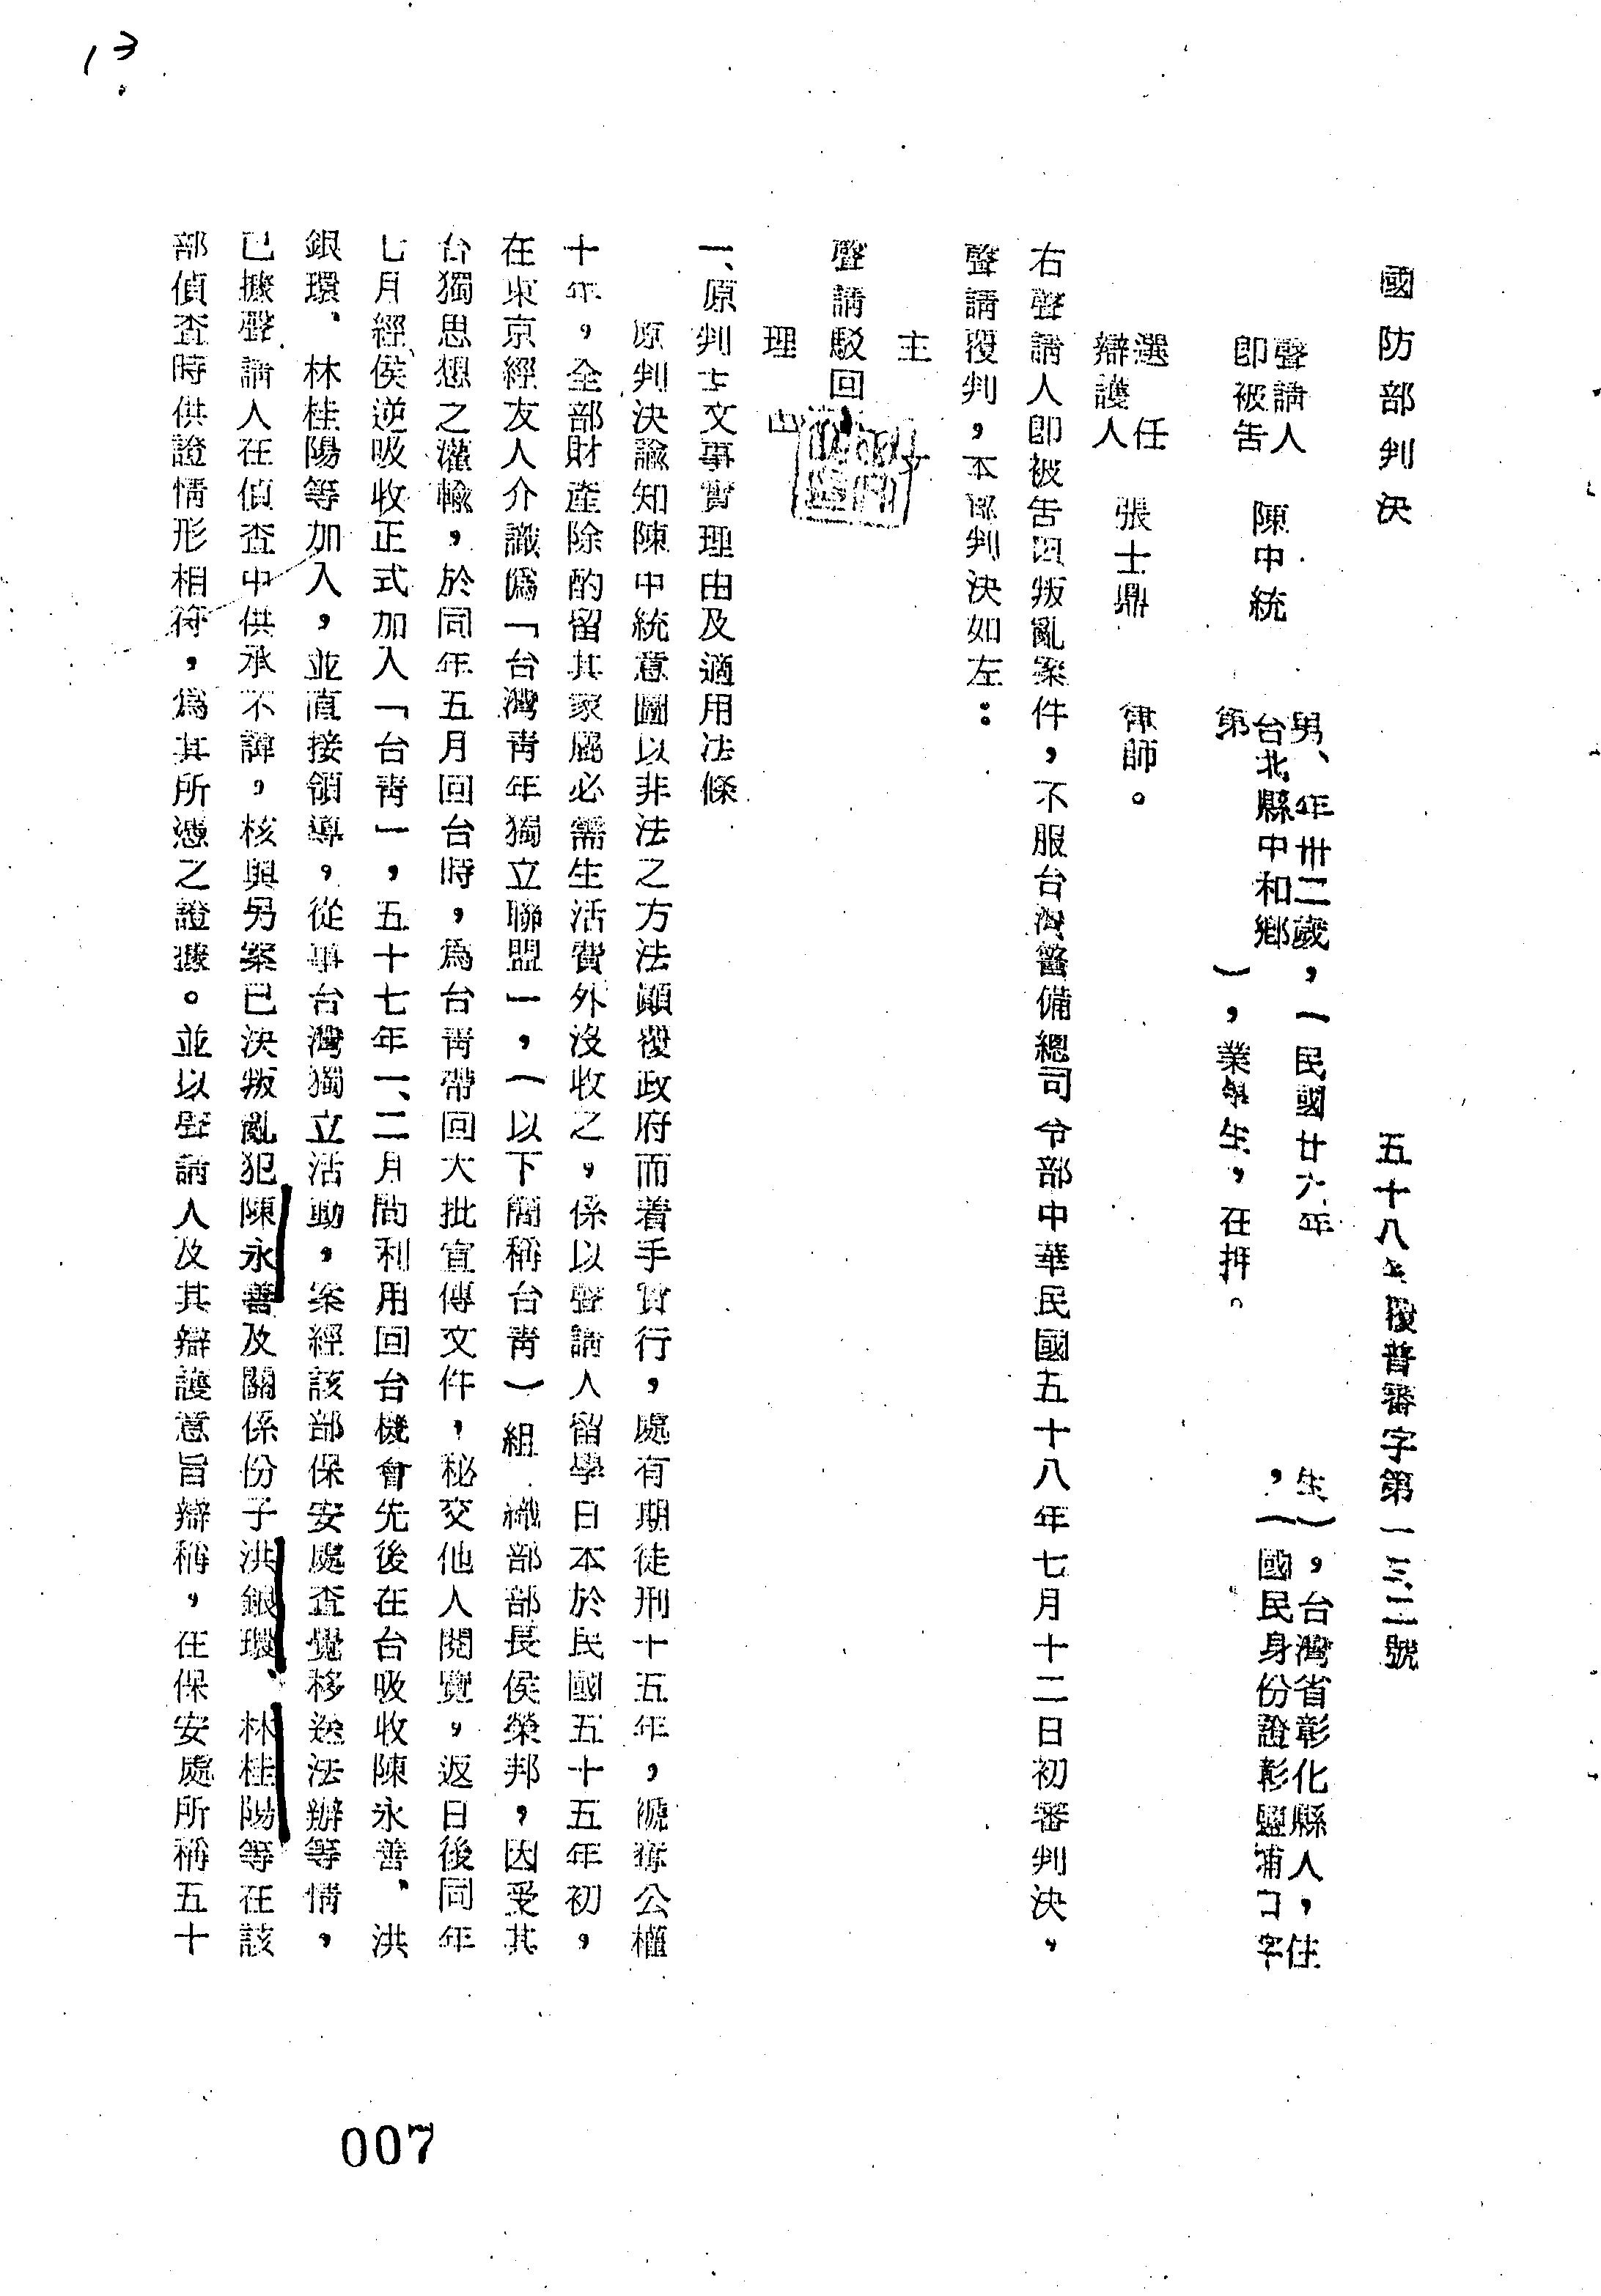 13
國防部判決
五十八年覆普審字第一三二號
聲請人
即被告
陳中統
男、年卅二歲，（民國廿六年
生），台灣省彰化縣人，住
台北縣中和鄉
，（國民身份證彰鹽埔口字
第
），業學生，在押。
選任
辯護人
張士鼎
律師。
右聲請人即被告因叛亂案件，不服台灣警備總司令部中華民國五十八年七月十二日初審判決，
聲請覆判，本部判決如左：
主文
聲請駁回。
理由
一、原判主文事實理由及適用法條
原判決諭知陳中統意圖以非法之方法顚覆政府而着手實行，處有期徒刑十五年，褫奪公權
十年，全部財產除酌留其家屬必需生活費外沒收之，係以聲請人留學日本於民國五十五年初，
在東京經友人介識偽「台灣青年獨立聯盟」，（以下簡稱台青）組織部部長侯榮邦，因受其
台獨思想之灌輸，於同年五月回台時，為台青帶回大批宣傳文件，秘交他人閱覽，返日後同年
七月經侯逆吸收正式加入「台青」，五十七年一、二月間利用回台機會先後在台吸收陳永善、洪
銀環、林桂陽等加入，並直接領導，從事台灣獨立活動，案經該部保安處查覺移送法辦等情，
已據聲請人在偵查中供承不諱，核與另案已決叛亂犯陳永善及關係份子洪銀環、林桂陽等在該
部偵查時供證情形相符，為其所憑之證據。並以聲請人及其辯護意旨辯稱，在保安處所稱五十
007